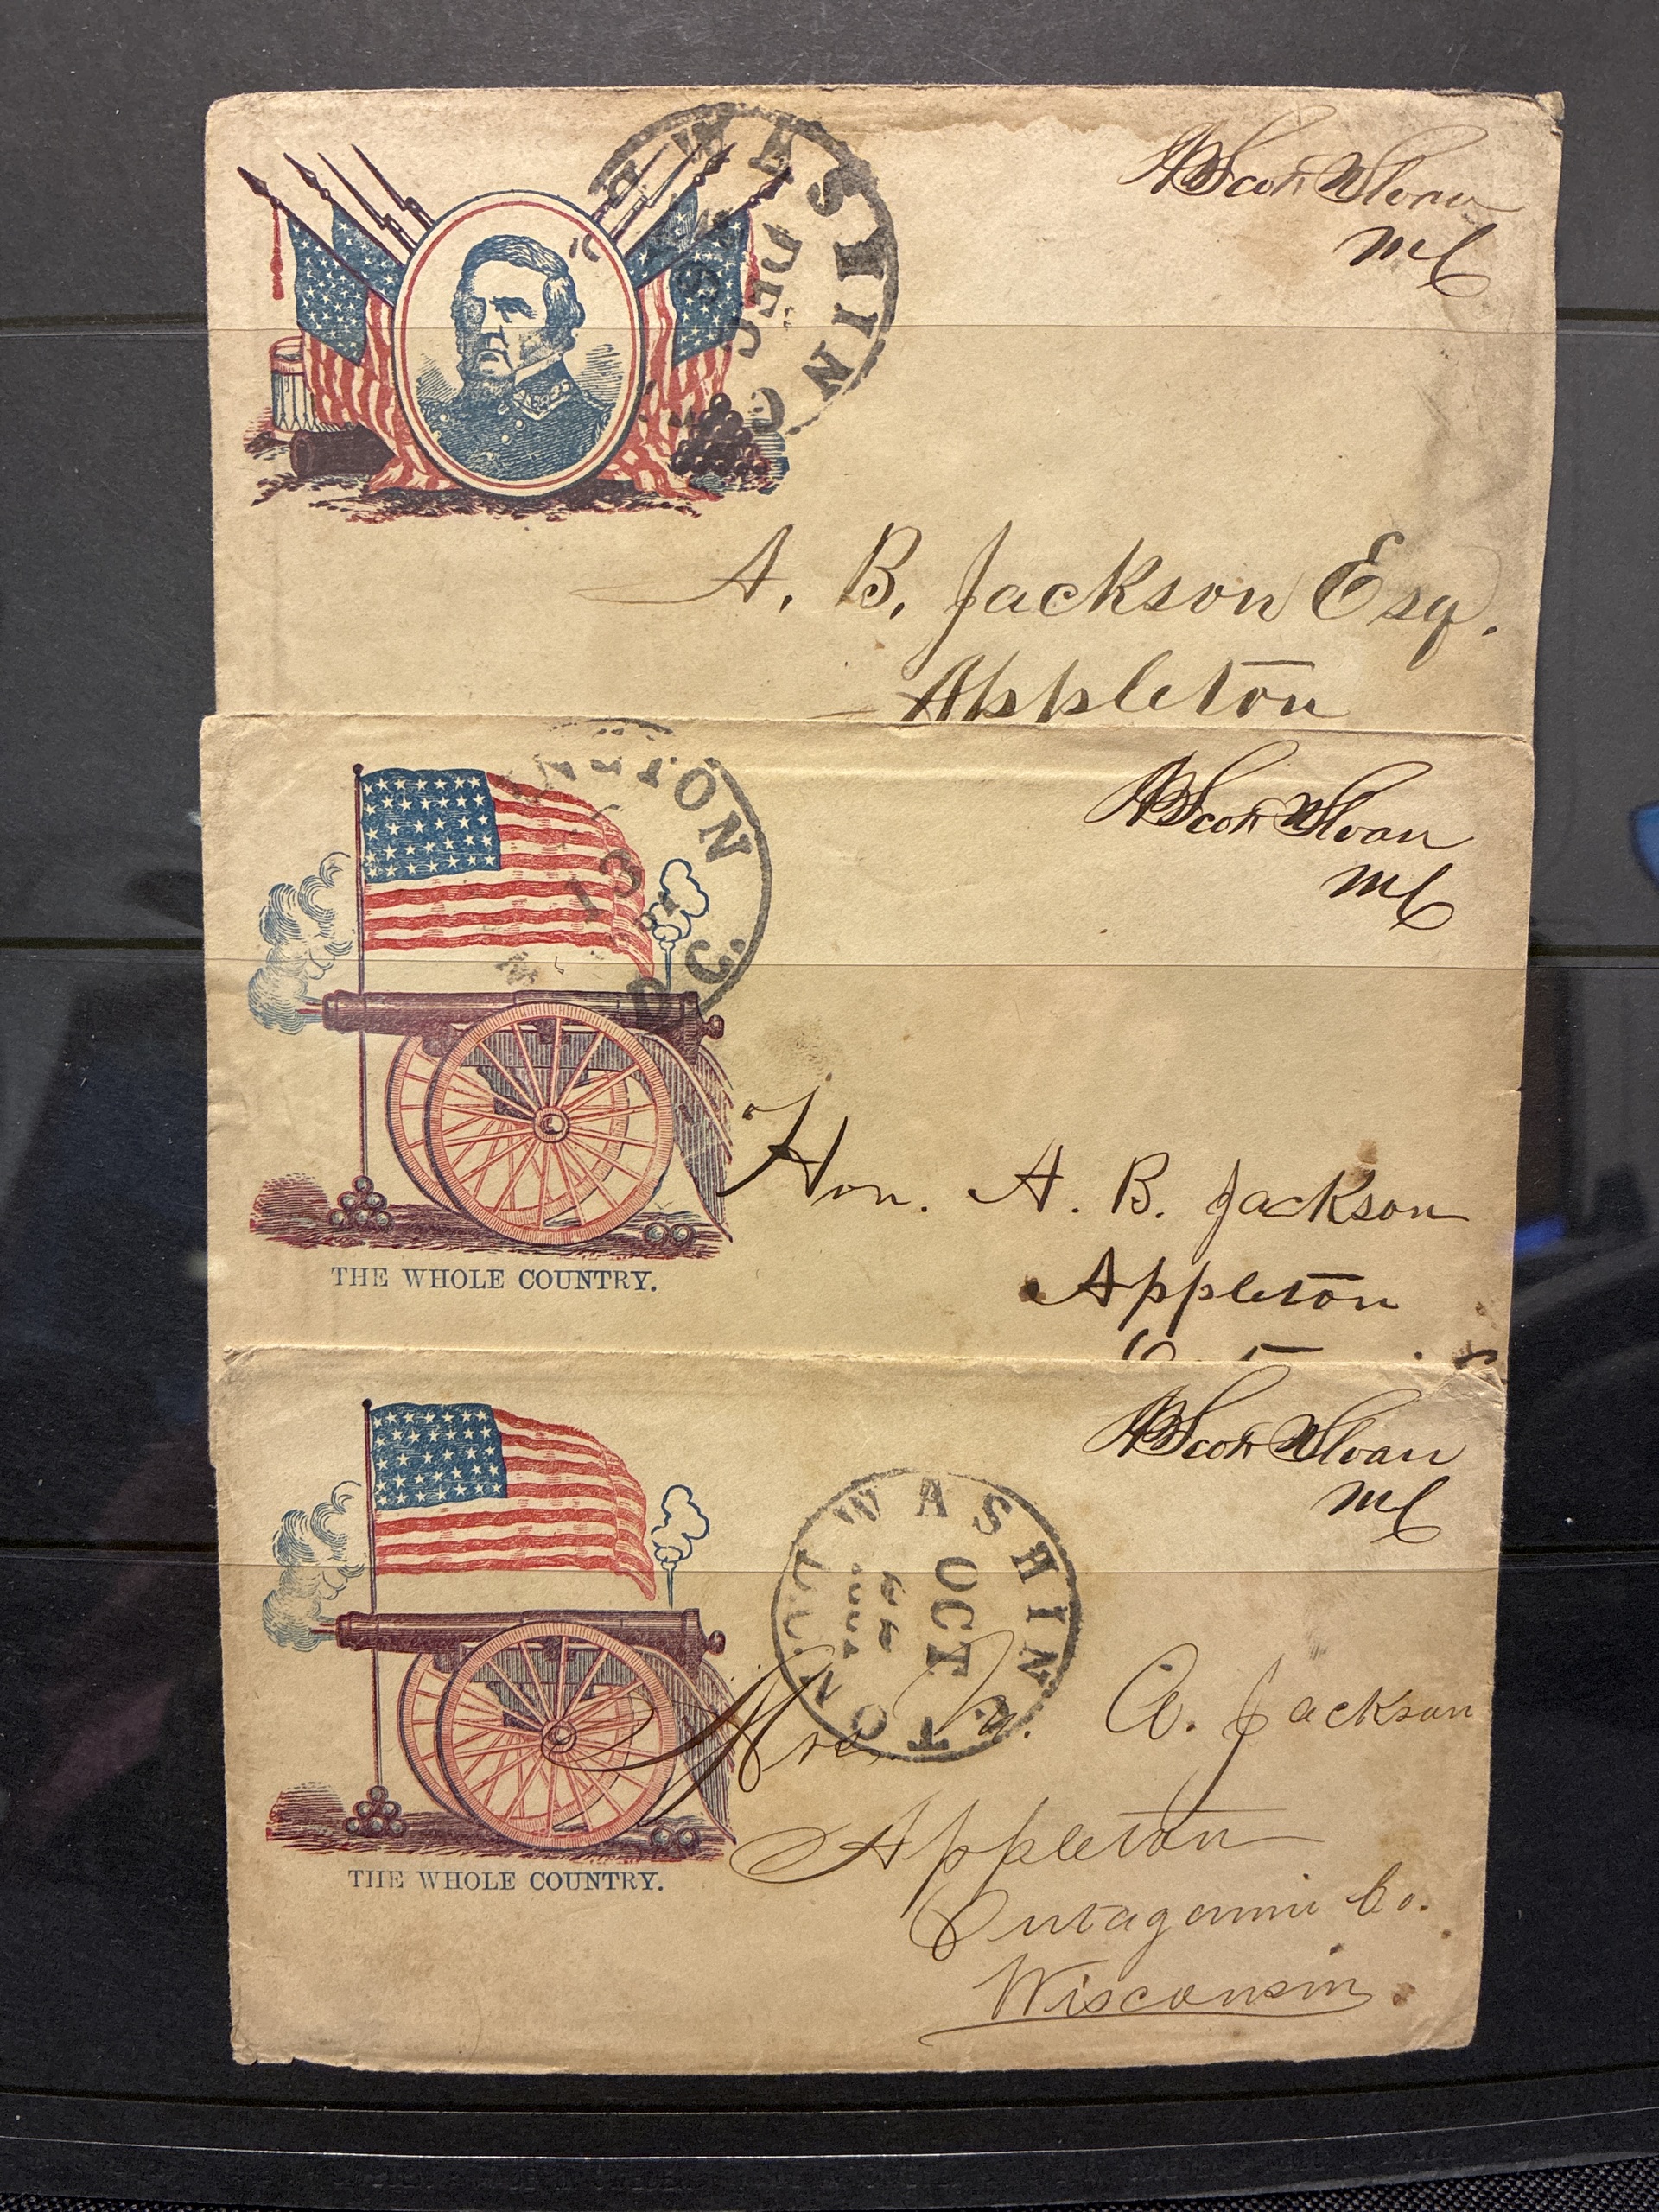 A Scott Sloan
MC
WASHING
DEC
A. B. Jackson Esq.
Appleton
A Scott Sloan
MC
TON
13
D.C.
Hon. A. B. Jackson
Appleton
THE WHOLE COUNTRY.
A Scott Sloan
MC
WASHINGTON
OCT
Mrs A. Jackson
Appleton
Outagamie Co.
Wisconsin
THE WHOLE COUNTRY.